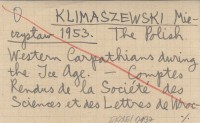 O KLIMASZEWSKI Mie-
czysław 1953. The Polish
Western Carpathians during
the Ice Age. - Comptes
Rendus de la Société des
Sciences et des Lettres de Wroc-